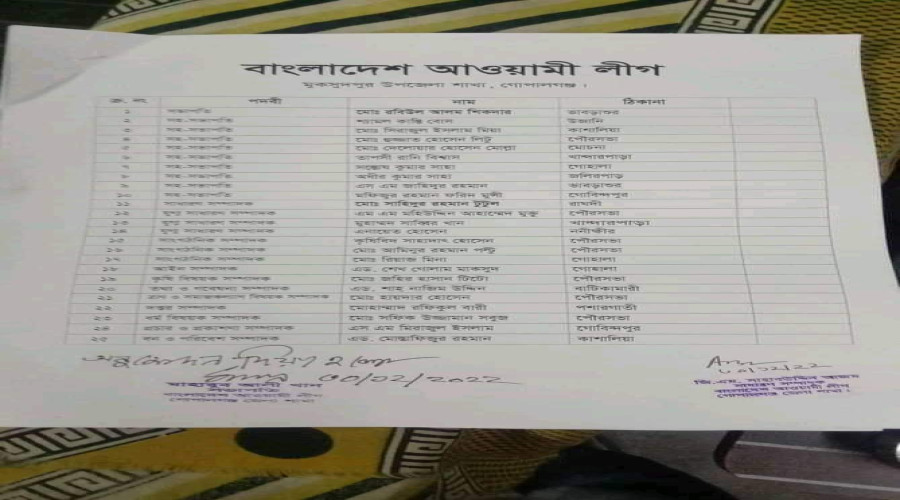 বাংলাদেশ আওয়ামী লীগ
মুকসুদপুর উপজেলা শাখা, গোপালগঞ্জ।
ক্র. নং পদবী নাম ঠিকানা
১ সভাপতি মোঃ রবিউল আলম শিকদার ভাবড়াশুর
২ সহ-সভাপতি শ্যামল কান্তি বোস উজানি
৩ সহ-সভাপতি মোঃ সিরাজুল ইসলাম মিয়া কাশালিয়া
৪ সহ-সভাপতি মোঃ হুজ্জাত হোসেন লিটু পৌরসভা
৫ সহ-সভাপতি মোঃ দেলোয়ার হোসেন মোল্লা মোচনা
৬ সহ-সভাপতি তাপসী রানি বিশ্বাস খান্দারপাড়া
৭ সহ-সভাপতি সন্তোষ কুমার সাহা গোহালা
৮ সহ-সভাপতি অধীর কুমার সাহা জলিরপাড়
৯ সহ-সভাপতি এস এম জাহিদুর রহমান ভাবড়াশুর
১০ সহ-সভাপতি মফিজুর রহমান ফরিদ মুন্সী গোবিন্দপুর
১১ সাধারণ সম্পাদক মোঃ সাহিদুর রহমান টুটুল রাঘদী
১২ যুগ্ম সাধারণ সম্পাদক এম এম মহিউদ্দিন আহাম্মেদ মুক্ত পৌরসভা
১৩ যুগ্ম সাধারণ সম্পাদক মুহাম্মদ সাব্বির খান খান্দারপাড়া
১৪ যুগ্ম সাধারণ সম্পাদক এনায়েত হোসেন ননীক্ষীর
১৫ সাংগঠনিক সম্পাদক কৃষিবিদ সাহাদাৎ হোসেন পৌরসভা
১৬ সাংগঠনিক সম্পাদক মোঃ আমিনুর রহমান পল্টু পৌরসভা
১৭ সাংগঠনিক সম্পাদক মোঃ রিয়াজ মিনা গোহালা
১৮ আইন সম্পাদক এড. শেখ গোলাম মাকসুদ গোহালা
১৯ কৃষি বিষয়ক সম্পাদক মোঃ জহির হাসান টিটো পৌরসভা
২০ তথ্য ও গবেষণা সম্পাদক এড. শাহ নাজিম উদ্দিন বাটিকামারী
২১ ত্রাণ ও সমাজকল্যাণ বিষয়ক সম্পাদক মোঃ হায়দার হোসেন পৌরসভা
২২ দপ্তর সম্পাদক মোহাম্মাদ রফিকুল বারী পশারগাতী
২৩ ধর্ম বিষয়ক সম্পাদক মোঃ সফিক উজ্জামান সবুজ পৌরসভা
২৪ প্রচার ও প্রকাশণা সম্পাদক এস এম মিরাজুল ইসলাম গোবিন্দপুর
২৫ বন ও পরিবেশ সম্পাদক এড. মোস্তাফিজুর রহমান কাশালিয়া
অনুমোদন দেয়া হলো
৩০/১২/২০২২
মাহাবুব আলী খান
সভাপতি
বাংলাদেশ আওয়ামী লীগ
গোপালগঞ্জ জেলা শাখা
৩০/১২/২২
জি.এম. সাহাবউদ্দিন আজম
সাধারণ সম্পাদক
বাংলাদেশ আওয়ামী লীগ
গোপালগঞ্জ জেলা শাখা।